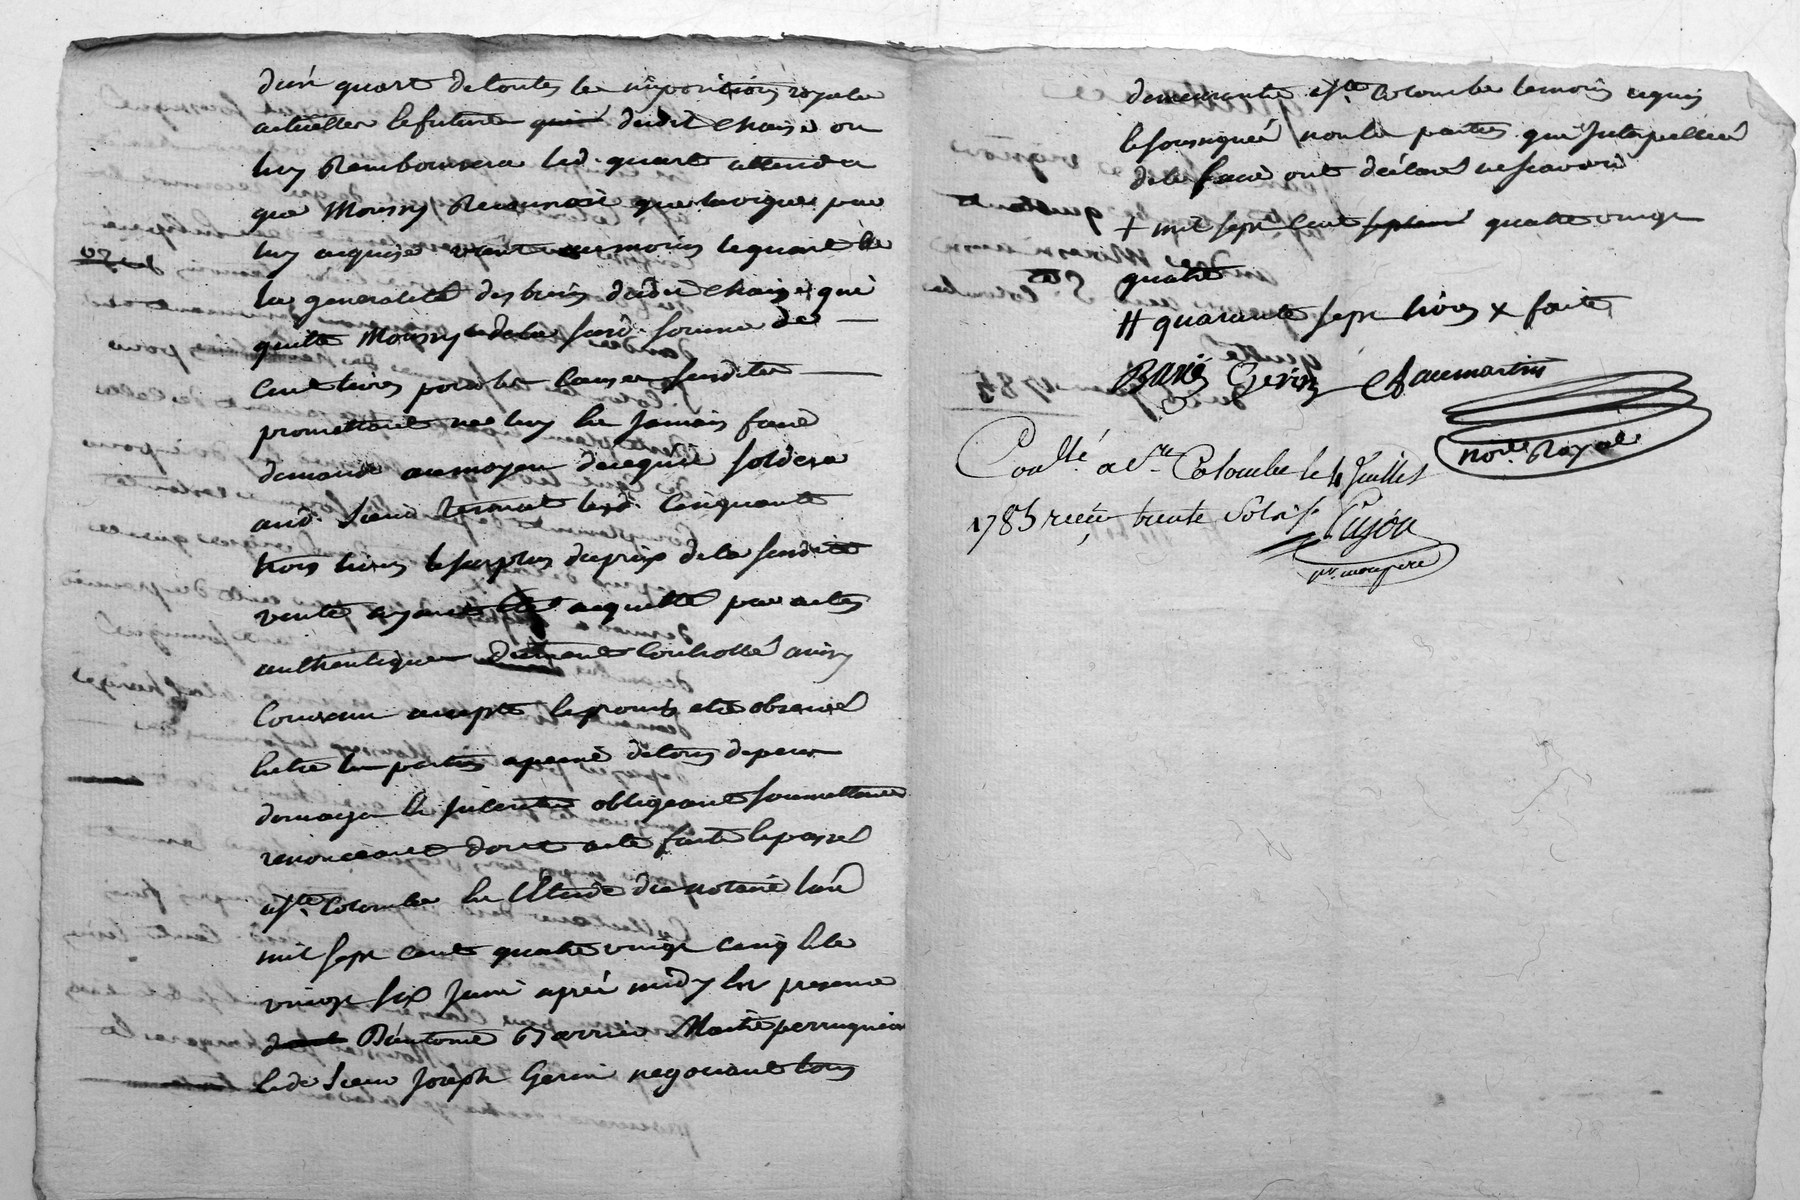 d'un quart de toutes les impositions royales
actuelles & future dudit Chaize ou
luy Remboursera led. quart attendu
que Moussy Reconnoit que la vigne par
luy acquise vient au moins le quart de
la generalité des biens dudit Chaize qui
quitte Moussy de la susd. somme de
Cent livres pour les Causes susdites
promettant ne luy en Jamais faire
demande au moyen de ce qui soldera
aud. sieur lesd. Cinquante
trois livres le surplus du prix de la susdite
vente ayant été acquitté par actes
authentiques Controllé ainsy
Convenu accepté & promis etre observé
Entre les parties a peine de tous depens
domages & interets obligeant soumettant
renonceant dont acte fait & passé
a Ste. Colombe En l'Etude du notaire lan
mil sept cent quatre vingt cinq & le
vingt six Juin après midy En presence
D'antoine Barrier Maitre perruquier
& de sieur Joseph Gerin negociant tous
demeurants a Ste. Colombe temoins requis
& soussignés non les parties qui Interpellées
de le faire ont déclaré ne scavoir
+ mil sept cent quatre vingt
quatre
# quarante sept livres x faite
Gerin Chaumartin
not.re Royal
Con.llé a Ste Colombe le 4 Juillet
1785 reçu trente sols six
Cujou
pr. mon pere